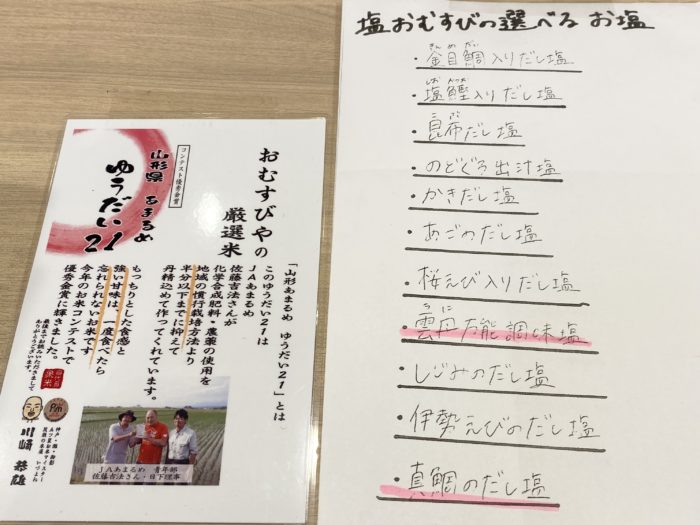 塩おむすびの選べるお塩
きんめだい
・金目鯛入りだし塩
しおかつお
・塩鰹入りだし塩
こんぶ
・昆布だし塩
・のどぐろ出汁塩
・かきだし塩
・あごのだし塩
・桜えび入りだし塩
うに
・雲丹万能調味塩
・しじみのだし塩
・伊勢えびのだし塩
・真鯛のだし塩
おむすびやの
厳選米
コンテスト優秀金賞
山形県 あまるめ
ゆうだい21
「山形あまるめ ゆうだい21」とは
このゆうだい21は
JAあまるめ
佐藤吉法さんが
化学合成肥料・農薬の使用を
地域の慣行栽培方法より
半分以下までに抑えて
丹精込めて作ってくれています。
もっちりとした食感と
強い甘味は、一度食べたら
忘れられないお米です
今年のお米コンテストで
優秀金賞に輝きました。
最後までお読みいただきまして
ありがとうございます。
川崎 恭雄
JAあまるめ 青年部
佐藤吉法さん・日下理事